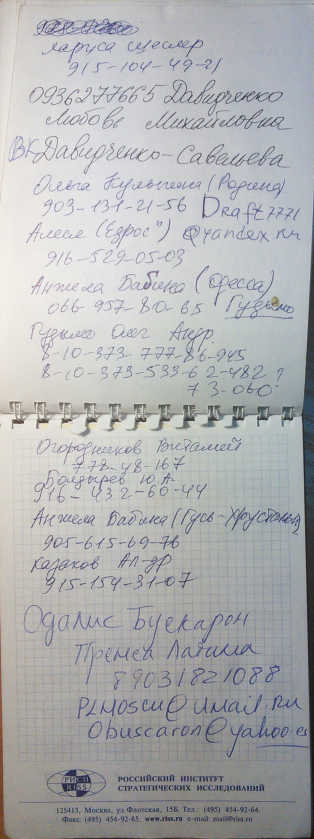 Лариса Щеслер
915-104-49-21
0936277665 Давидченко
Любовь Михайловна
ВК Давидченко-Савельева
Ольга Кулыгина (Родина)
903-131-21-56 Draft7771
Алеся ("Едрос") @yandex.ru
916-529-05-03
Анжела Бабина (Одесса)
066-957-80-65 Гудымо
Гудымо Олег Андр.
8-10-373-777-86-945
8-10-373-533-62-482 ?
73-060
Огородников Виталий
778-48-167
Болдырев Ю.А.
916-432-60-44
Анжела Бабина (Гусь-Хрустальн)
905-615-69-76
Казаков Ал-др
915-154-31-07
Одалис Бускарон
Пренса Латина
89031821088
PLMOSCU@mail.ru
Obuscaron@yahoo.es
РИСИ
RISS
РОССИЙСКИЙ ИНСТИТУТ
СТРАТЕГИЧЕСКИХ ИССЛЕДОВАНИЙ
125413, Москва, ул Флотская, 15Б. Тел.: (495) 454-92-64.
Факс: (495) 454-92-65. www.riss.ru e-mail: mail@riss.ru